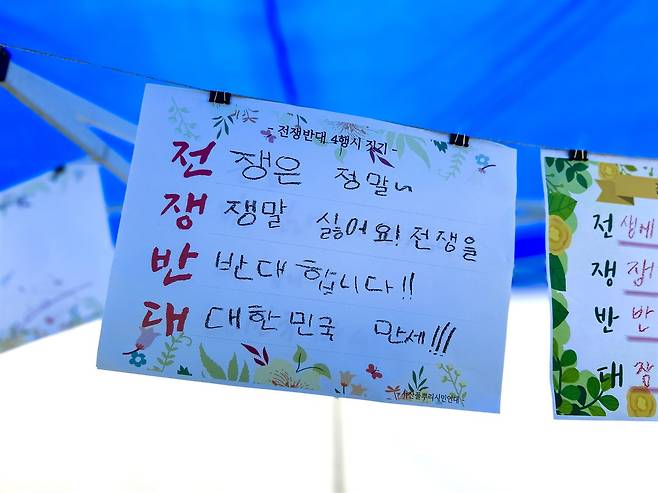 - 전쟁반대 4행시 짓기 -
전 쟁은 정말~
쟁 쟁말 싫어요! 전쟁을
반 반대합니다!!
대 대한민국 만세!!!
전 생에
쟁
반 반
대